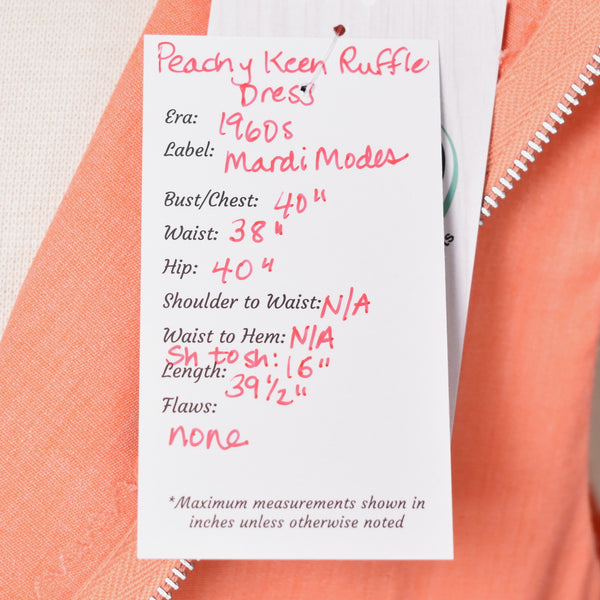 Peachy Keen Ruffle
Dress
Era: 1960s
Label: Mardi Modes
Bust/Chest: 40"
Waist: 38"
Hip: 40"
Shoulder to Waist: N/A
Waist to Hem: N/A
Sh to sh: 16"
Length: 39 1/2"
Flaws:
none
*Maximum measurements shown in
inches unless otherwise noted